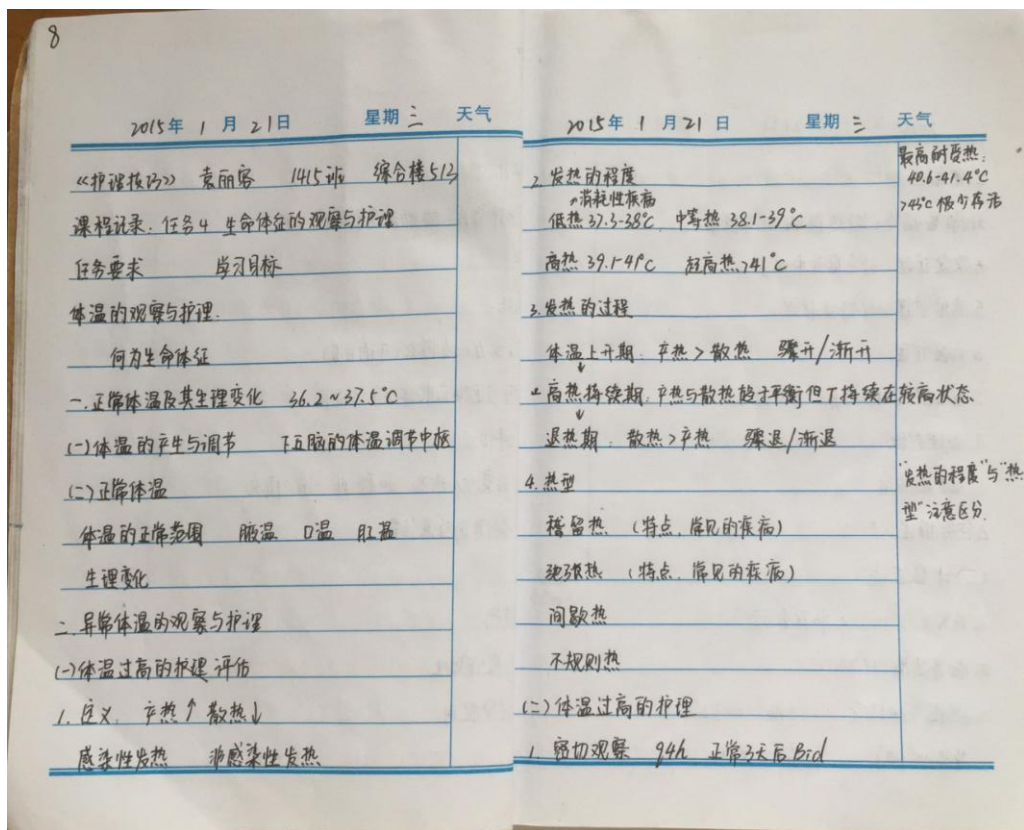 8
2015年 1月 21日 星期三 天气
《护理技巧》 袁丽容 1415班 综合楼513
课程记录:任务4 生命体征的观察与护理
任务要求 学习目标
体温的观察与护理.
何为生命体征
一.正常体温及其生理变化 36.2~37.5℃
(一)体温的产生与调节 下丘脑的体温调节中枢
(二)正常体温
体温的正常范围 腋温 口温 肛温
生理变化
二.异常体温的观察与护理
(一)体温过高的护理评估
1.定义. 产热↑ 散热↓
感染性发热 非感染性发热
2015年 1月 21日 星期三 天气
2.发热的程度
消耗性疾病
低热37.3-38℃ 中等热38.1-39℃
高热39.1-41℃ 超高热>41℃
3.发热的过程
体温上升期.产热>散热 骤升/渐升
↓
高热持续期.产热与散热趋于平衡但T持续在较高状态
↓
退热期.散热>产热 骤退/渐退
4.热型
稽留热 (特点.常见的疾病)
弛张热 (特点.常见的疾病)
间歇热
不规则热
(二)体温过高的护理
1.密切观察 q4h 正常3天后Bid
最高耐受热:
40.6-41.4℃
>43℃很少存活
"发热的程度"与"热
型"注意区分.